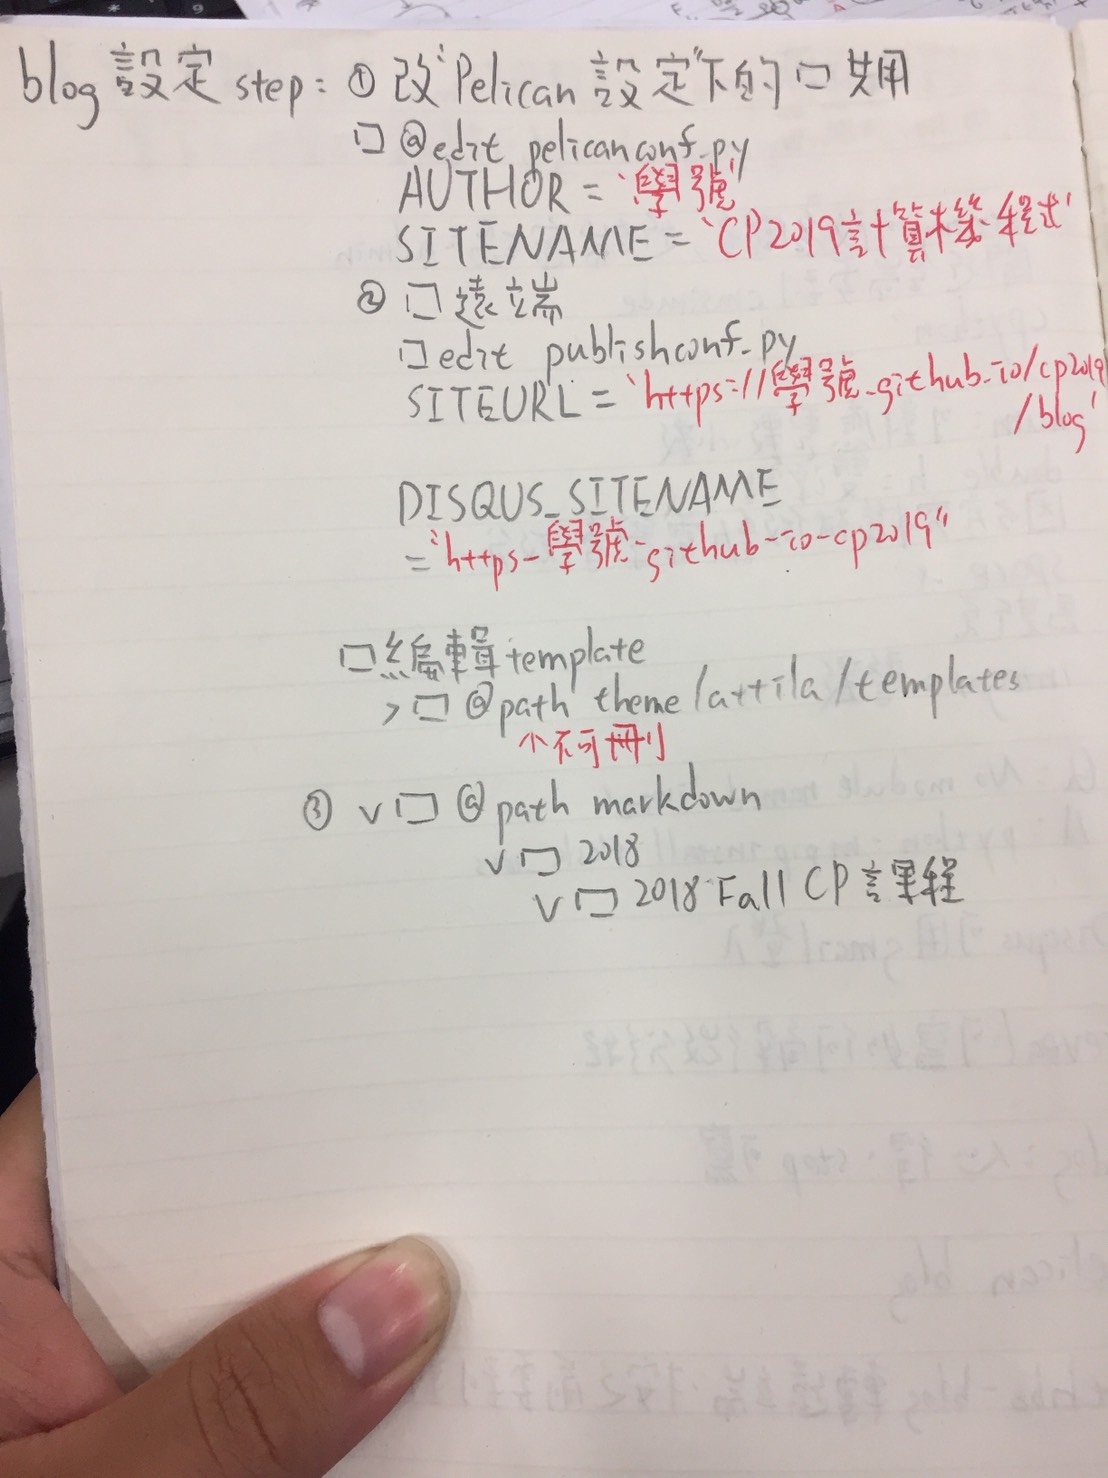 blog設定 step: ① 改“Pelican設定”下的 口 共用
口 @edit pelicanconf.py
AUTHOR = '學號'
SITENAME = 'CP2019計算機程式'
② 口 遠端
口 edit publishconf.py
SITEURL = 'https://學號.github.io/cp2019
/blog'
DISQUS_SITENAME
= "https-學號-github-io-cp2019"
口 編輯 template
> 口 @path theme/attila/templates
个不可刪
③ v 口 @path markdown
v 口 2018
v 口 2018 Fall CP 課程